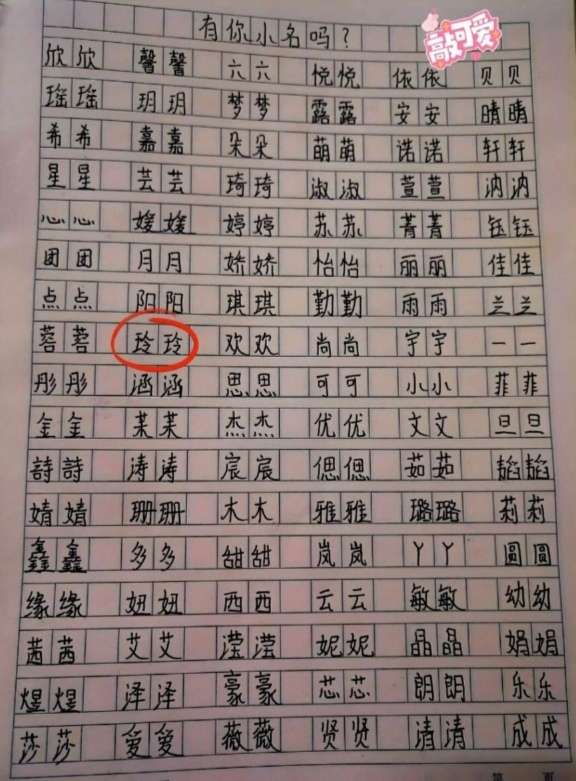 有你小名吗？
敲可爱
欣欣 馨馨 六六 悦悦 依依 贝贝
瑶瑶 玥玥 梦梦 露露 安安 晴晴
希希 嘉嘉 朵朵 萌萌 诺诺 轩轩
星星 芸芸 琦琦 淑淑 萱萱 汭汭
心心 媛媛 婷婷 苏苏 菁菁 钰钰
团团 月月 娇娇 怡怡 丽丽 佳佳
点点 阳阳 琪琪 勤勤 雨雨 兰兰
蓉蓉 玲玲 欢欢 尚尚 宇宇 一一
彤彤 涵涵 思思 可可 小小 菲菲
金金 茉茉 杰杰 优优 文文 旦旦
詩詩 涛涛 宸宸 偲偲 茹茹 韬韬
婧婧 珊珊 木木 雅雅 璐璐 莉莉
鑫鑫 多多 甜甜 岚岚 丫丫 圆圆
缘缘 妞妞 西西 云云 敏敏 幼幼
茜茜 艾艾 滢滢 妮妮 晶晶 娟娟
煜煜 泽泽 豪豪 芯芯 朗朗 乐乐
莎莎 爱爱 薇薇 贤贤 清清 成成
第 页